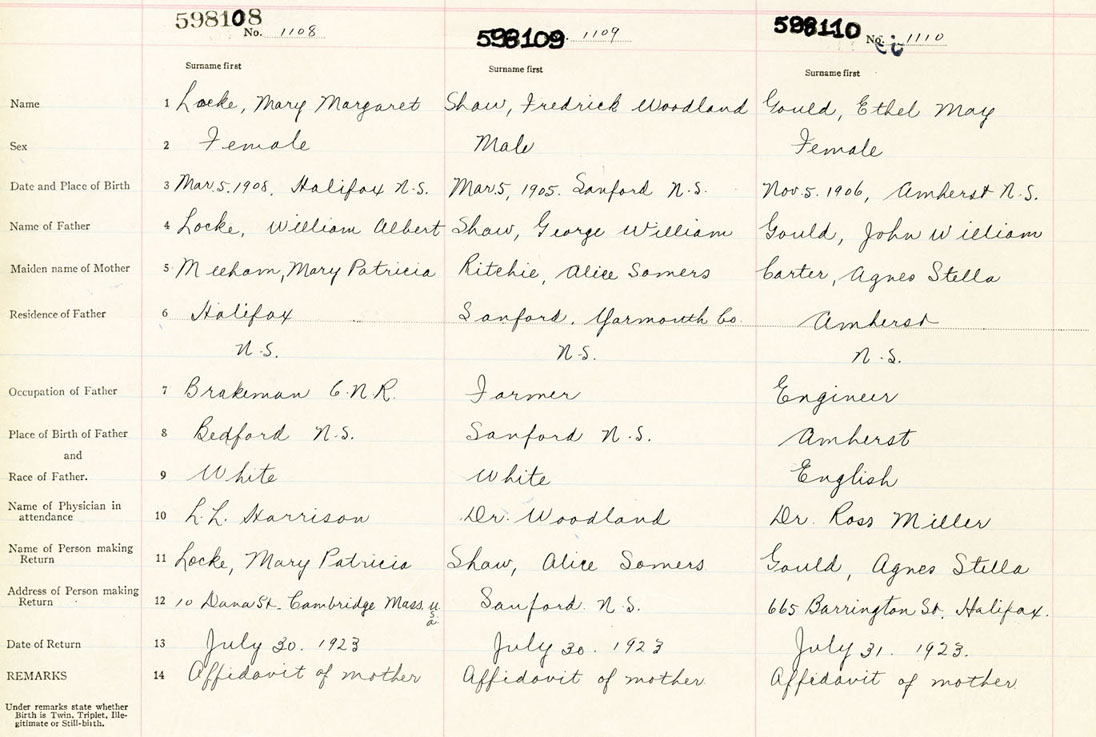 598108 598109 598110
No. 1108 1109 No. 1110
Surname first Surname first Surname first
Name 1 Locke, Mary Margaret Shaw, Fredrick Woodland Gould, Ethel May
Sex 2 Female Male Female
Date and Place of Birth 3 Mar. 5. 1908. Halifax N.S. Mar. 5, 1905. Sanford N.S. Nov. 5. 1906, Amherst N.S.
Name of Father 4 Locke, William Albert Shaw, George William Gould, John William
Maiden name of Mother 5 Meeham, Mary Patricia Ritchie, Alice Somers Carter, Agnes Stella
Residence of Father 6 Halifax Sanford. Yarmouth Co Amherst
N.S. N.S. N.S.
Occupation of Father 7 Brakeman C.N.R. Farmer Engineer
Place of Birth of Father 8 Bedford N.S. Sanford N.S. Amherst
and
Race of Father. 9 White White English
Name of Physician in
attendance 10 L.L. Harrison Dr. Woodland Dr. Ross Miller
Name of Person making
Return 11 Locke, Mary Patricia Shaw, Alice Somers Gould, Agnes Stella
Address of Person making
Return 12 10 Dana St. Cambridge Mass. U.S.A. Sanford. N.S. 665 Barrington St. Halifax.
Date of Return 13 July 30. 1923 July 30. 1923 July 31. 1923.
REMARKS 14 Affidavit of mother Affidavit of mother Affidavit of mother
Under remarks state whether
Birth is Twin, Triplet, Ille-
gitimate or Still-birth.